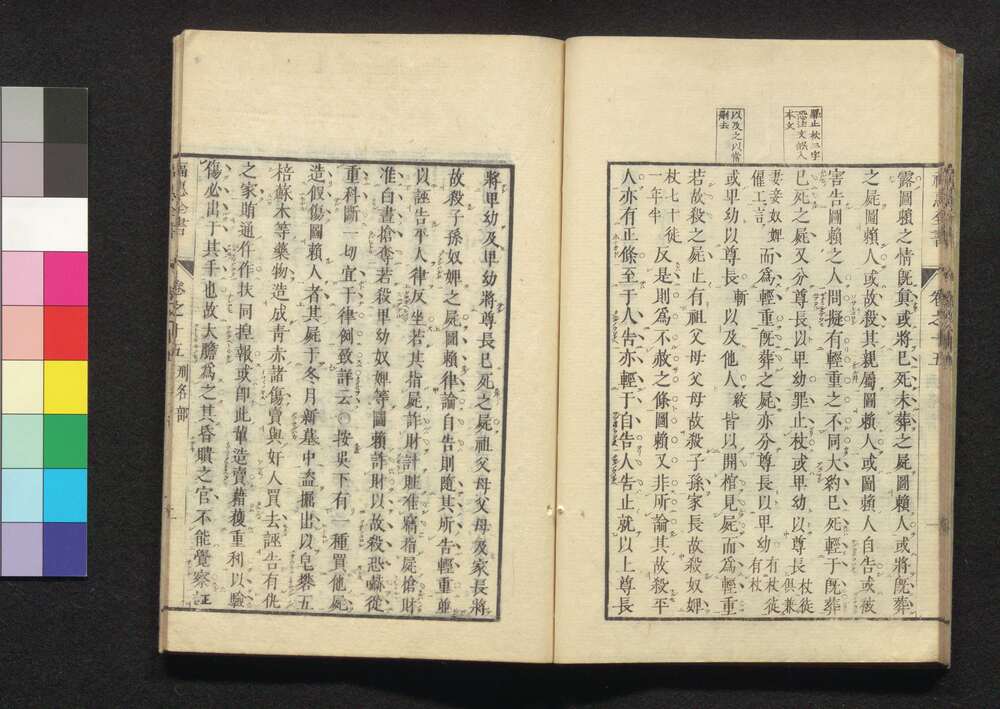 罪止杖三字
恐注文誤入
本文
以及之以當
刪去
露圖賴之情旣眞或將已死未葬之屍圖賴人或將旣葬
之屍圖賴人或故殺其親屬圖賴人或圖賴人自告或被
害告圖賴之人問擬有輕重之不同大約已死輕于旣葬
已死之屍又分尊長以卑幼罪止杖或卑幼以尊長杖徒俱兼
妻妾奴婢雇工言而爲輕重旣葬之屍亦分尊長以卑幼有杖徒有杖
或卑幼以尊長斬以及他人絞皆以開棺見屍而爲輕重
若故殺之屍止有祖父母父母故殺子孫家長故殺奴婢
杖七十徒一年半反是則爲不赦之條圖賴又非所論其故殺平
人亦有正條至于人告亦輕于自告人告止就以上尊長
福惠全書 卷之十五
將卑幼及卑幼將尊長已死之屍祖父母父母及家長將
故殺子孫奴婢之屍圖賴律論自告則隨其所告輕重並
以誣告平人律反坐若其指屍詐財計贓准竊指屍搶財
准白晝搶奪若殺卑幼奴婢等圖賴詐財以故殺恐嚇從
重科斷一切宜于律例致詳云○按吳下有一種買他屍
造假傷圖賴人者其屍于冬月新墓中盜掘出以皂礬五
棓蘇木等藥物造成靑赤諸傷賣與奸人買去誣告有仇
之家賄通仵作扶同揑報或卽此輩造賣藉獲重利以驗
傷必出于其手也故大膽爲之其昏聵之官不能覺察
福惠全書 卷之十五 刑名部